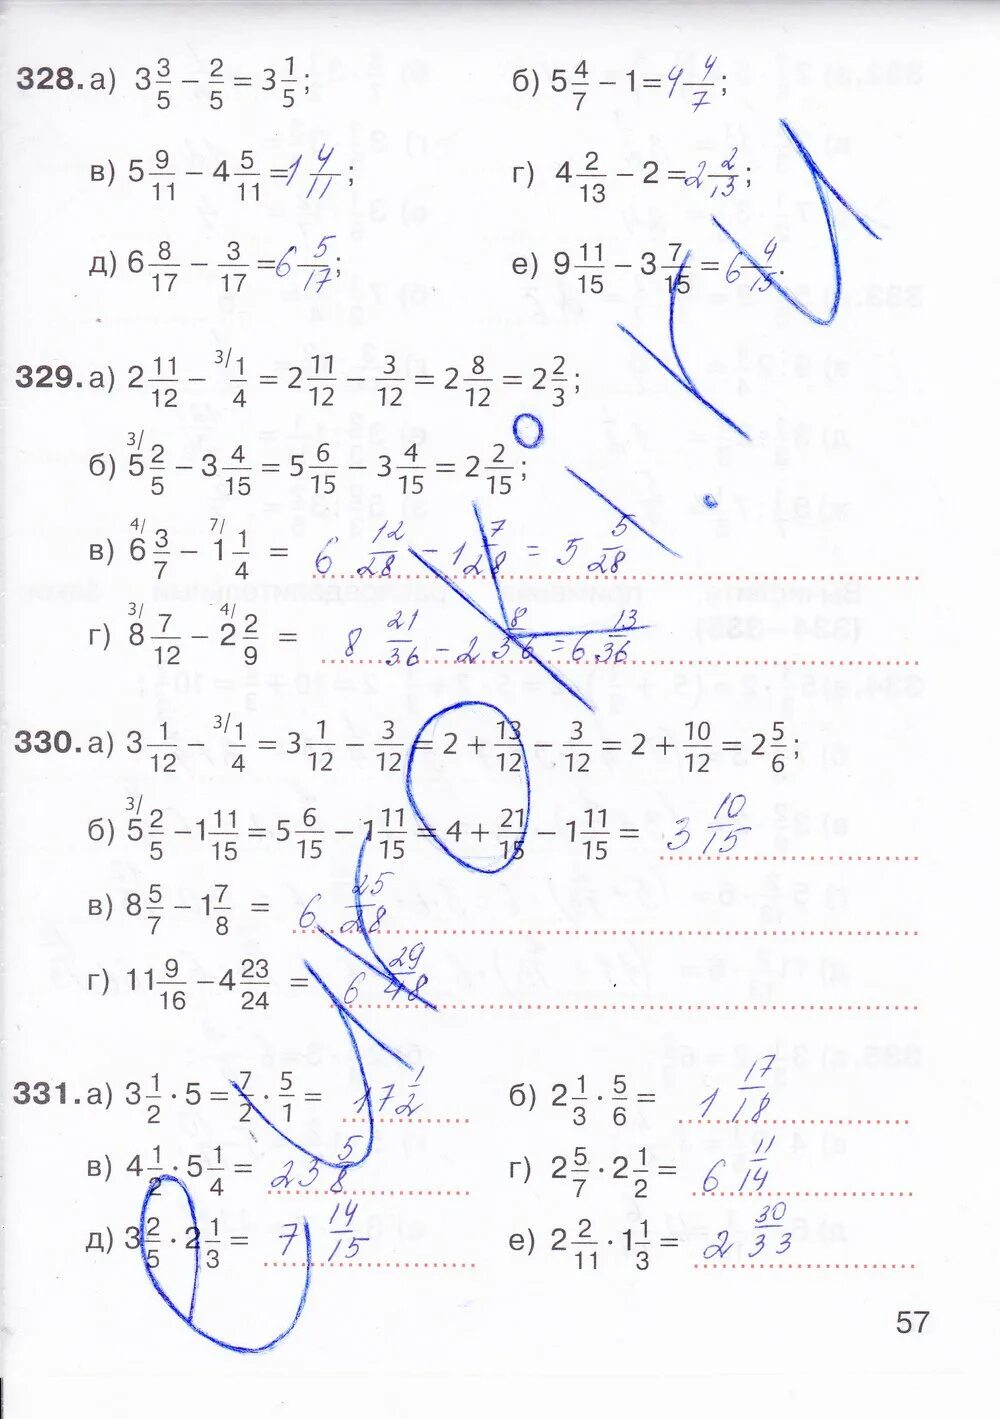 328. а) 3 3/5 − 2/5 = 3 1/5; б) 5 4/7 − 1 = 4 4/7;
в) 5 9/11 − 4 5/11 = 1 4/11; г) 4 2/13 − 2 = 2 2/13;
д) 6 8/17 − 3/17 = 6 5/17; е) 9 11/15 − 3 7/15 = 6 4/15.
329. а) 2 11/12 − ³⁄ 1/4 = 2 11/12 − 3/12 = 2 8/12 = 2 2/3;
б) ³⁄ 5 2/5 − 3 4/15 = 5 6/15 − 3 4/15 = 2 2/15;
в) ⁴⁄ 6 3/7 − ⁷⁄ 1 1/4 = 6 12/28 − 1 7/28 = 5 5/28
г) ³⁄ 8 7/12 − ⁴⁄ 2 2/9 = 8 21/36 − 2 8/36 = 6 13/36
330. а) 3 1/12 − ³⁄ 1/4 = 3 1/12 − 3/12 = 2 + 13/12 − 3/12 = 2 + 10/12 = 2 5/6;
б) ³⁄ 5 2/5 − 1 11/15 = 5 6/15 − 1 11/15 = 4 + 21/15 − 1 11/15 = 3 10/15
в) 8 5/7 − 1 7/8 = 6 25/28
г) 11 9/16 − 4 23/24 = 6 29/48
331. а) 3 1/2 · 5 = 7/2 · 5/1 = 17 1/2 б) 2 1/3 · 5/6 = 1 17/18
в) 4 1/2 · 5 1/4 = 23 5/8 г) 2 5/7 · 2 1/2 = 6 11/14
д) 3 2/5 · 2 1/3 = 7 14/15 е) 2 2/11 · 1 1/3 = 2 30/33
57